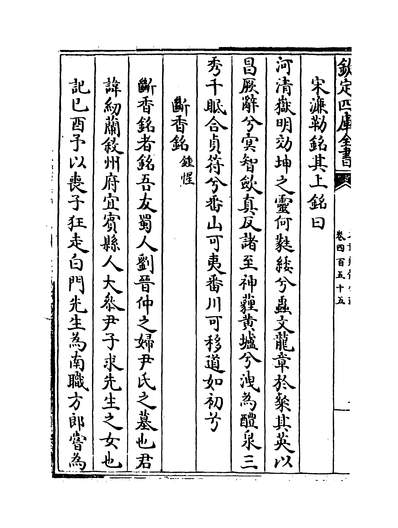 欽定四庫全書
卷四百五十五
宋濂勒銘其上銘曰
河清嶽明効坤之靈何㲯緌兮蟲文龍章於粲其英以
昌厥辭兮冥智斂真反諸至神薶黄壚兮洩為醴泉三
秀千眠合貞符兮番山可夷番川可移道如初兮
斷香銘 鍾惺
斷香銘者銘吾友蜀人劉晉仲之婦尹氏之墓也君
諱紉蘭敘州府宜賓縣人大叅尹子求先生之女也
記巳酉予以喪子狂走白門先生為南職方郎嘗為